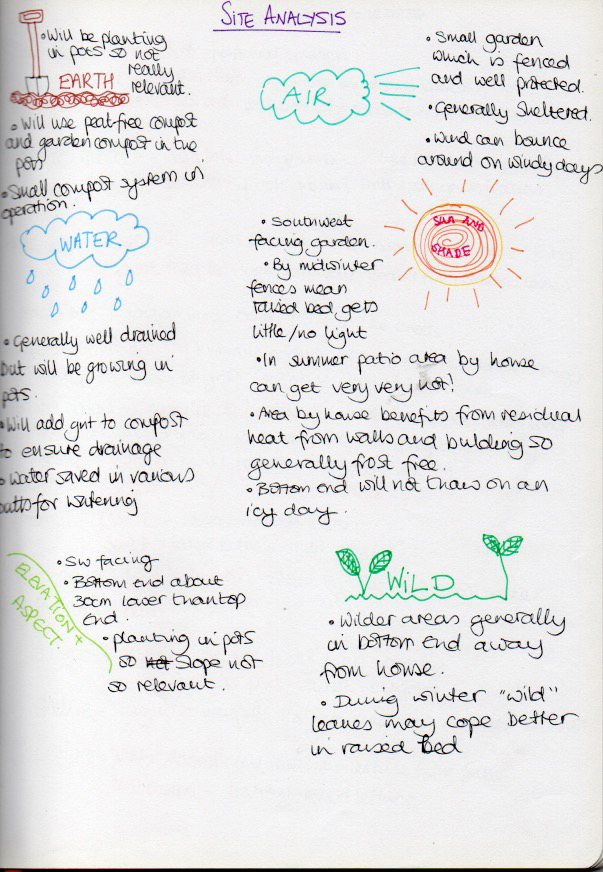 SITE ANALYSIS
• Will be planting
in pots so not
really
relevant.
EARTH
• Will use peat-free compost
and garden compost in the
pots
• Small compost system in
operation.
AIR
• Small garden
which is fenced
and well protected.
• Generally sheltered.
• Wind can bounce
around on windy days
WATER
• Generally well drained
but will be growing in
pots.
• Will add grit to compost
to ensure drainage
• Water saved in various
butts for watering
SUN AND
SHADE
• Southwest
facing garden.
• By midwinter
fences mean
raised bed gets
little/no light
• In summer patio area by house
can get very very hot!
• Area by house benefits from residual
heat from walls and building so
generally frost free.
• Bottom end will not thaw on an
icy day.
ELEVATION +
ASPECT.
• SW facing
• Bottom end about
30cm lower than top
end.
• planting in pots
so not slope not
so relevant.
WILD
• Wilder areas generally
in bottom end away
from house.
• During winter "wild"
leaves may cope better
in raised bed